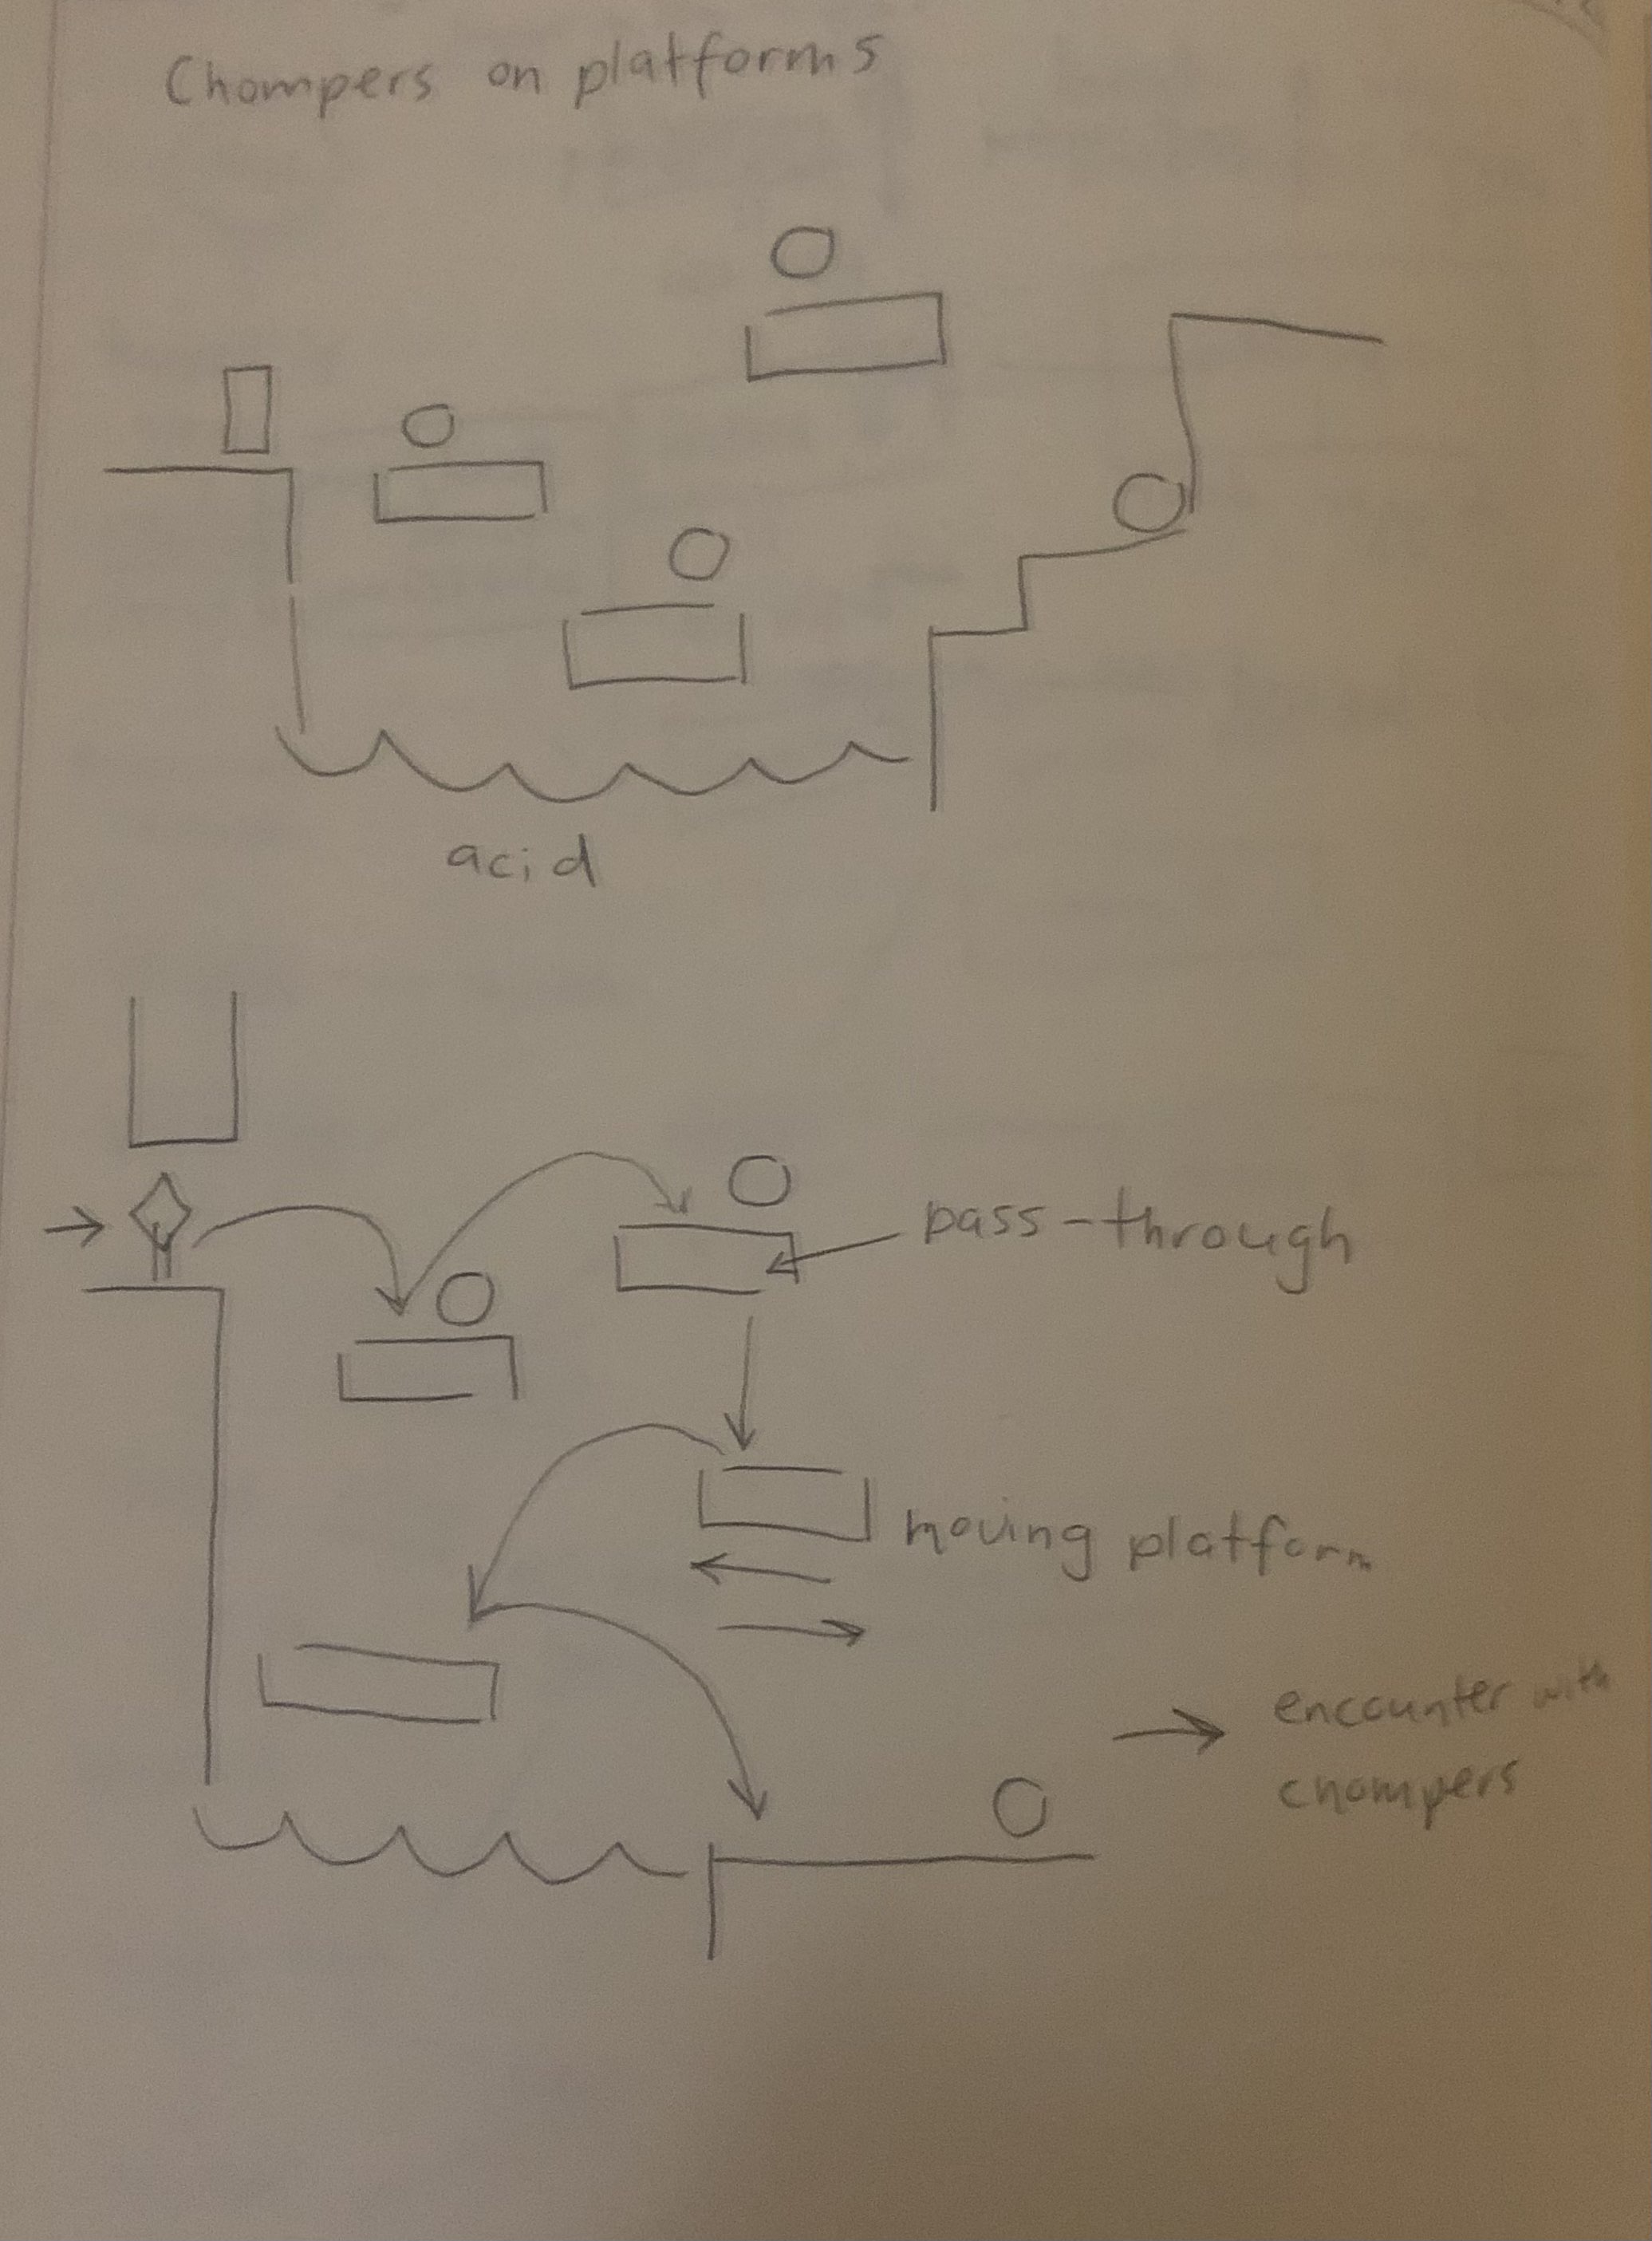 Chompers on platforms
acid
pass-through
moving platform
encounter with
chompers